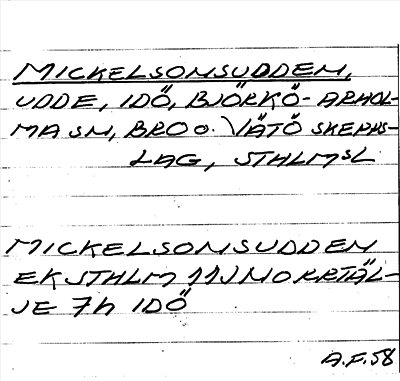 MICKELSOMSUDDEM,
UDDE, IDÖ, BJÖRKÖ-ARHOL-
MA SN, BRO O. VÄTÖ SKEPPS-
LAG, STHLMSL
MICKELSOMSUDDEM
EKSTHLM 11J NORRTÄL-
JE 7h IDÖ
A.F.58